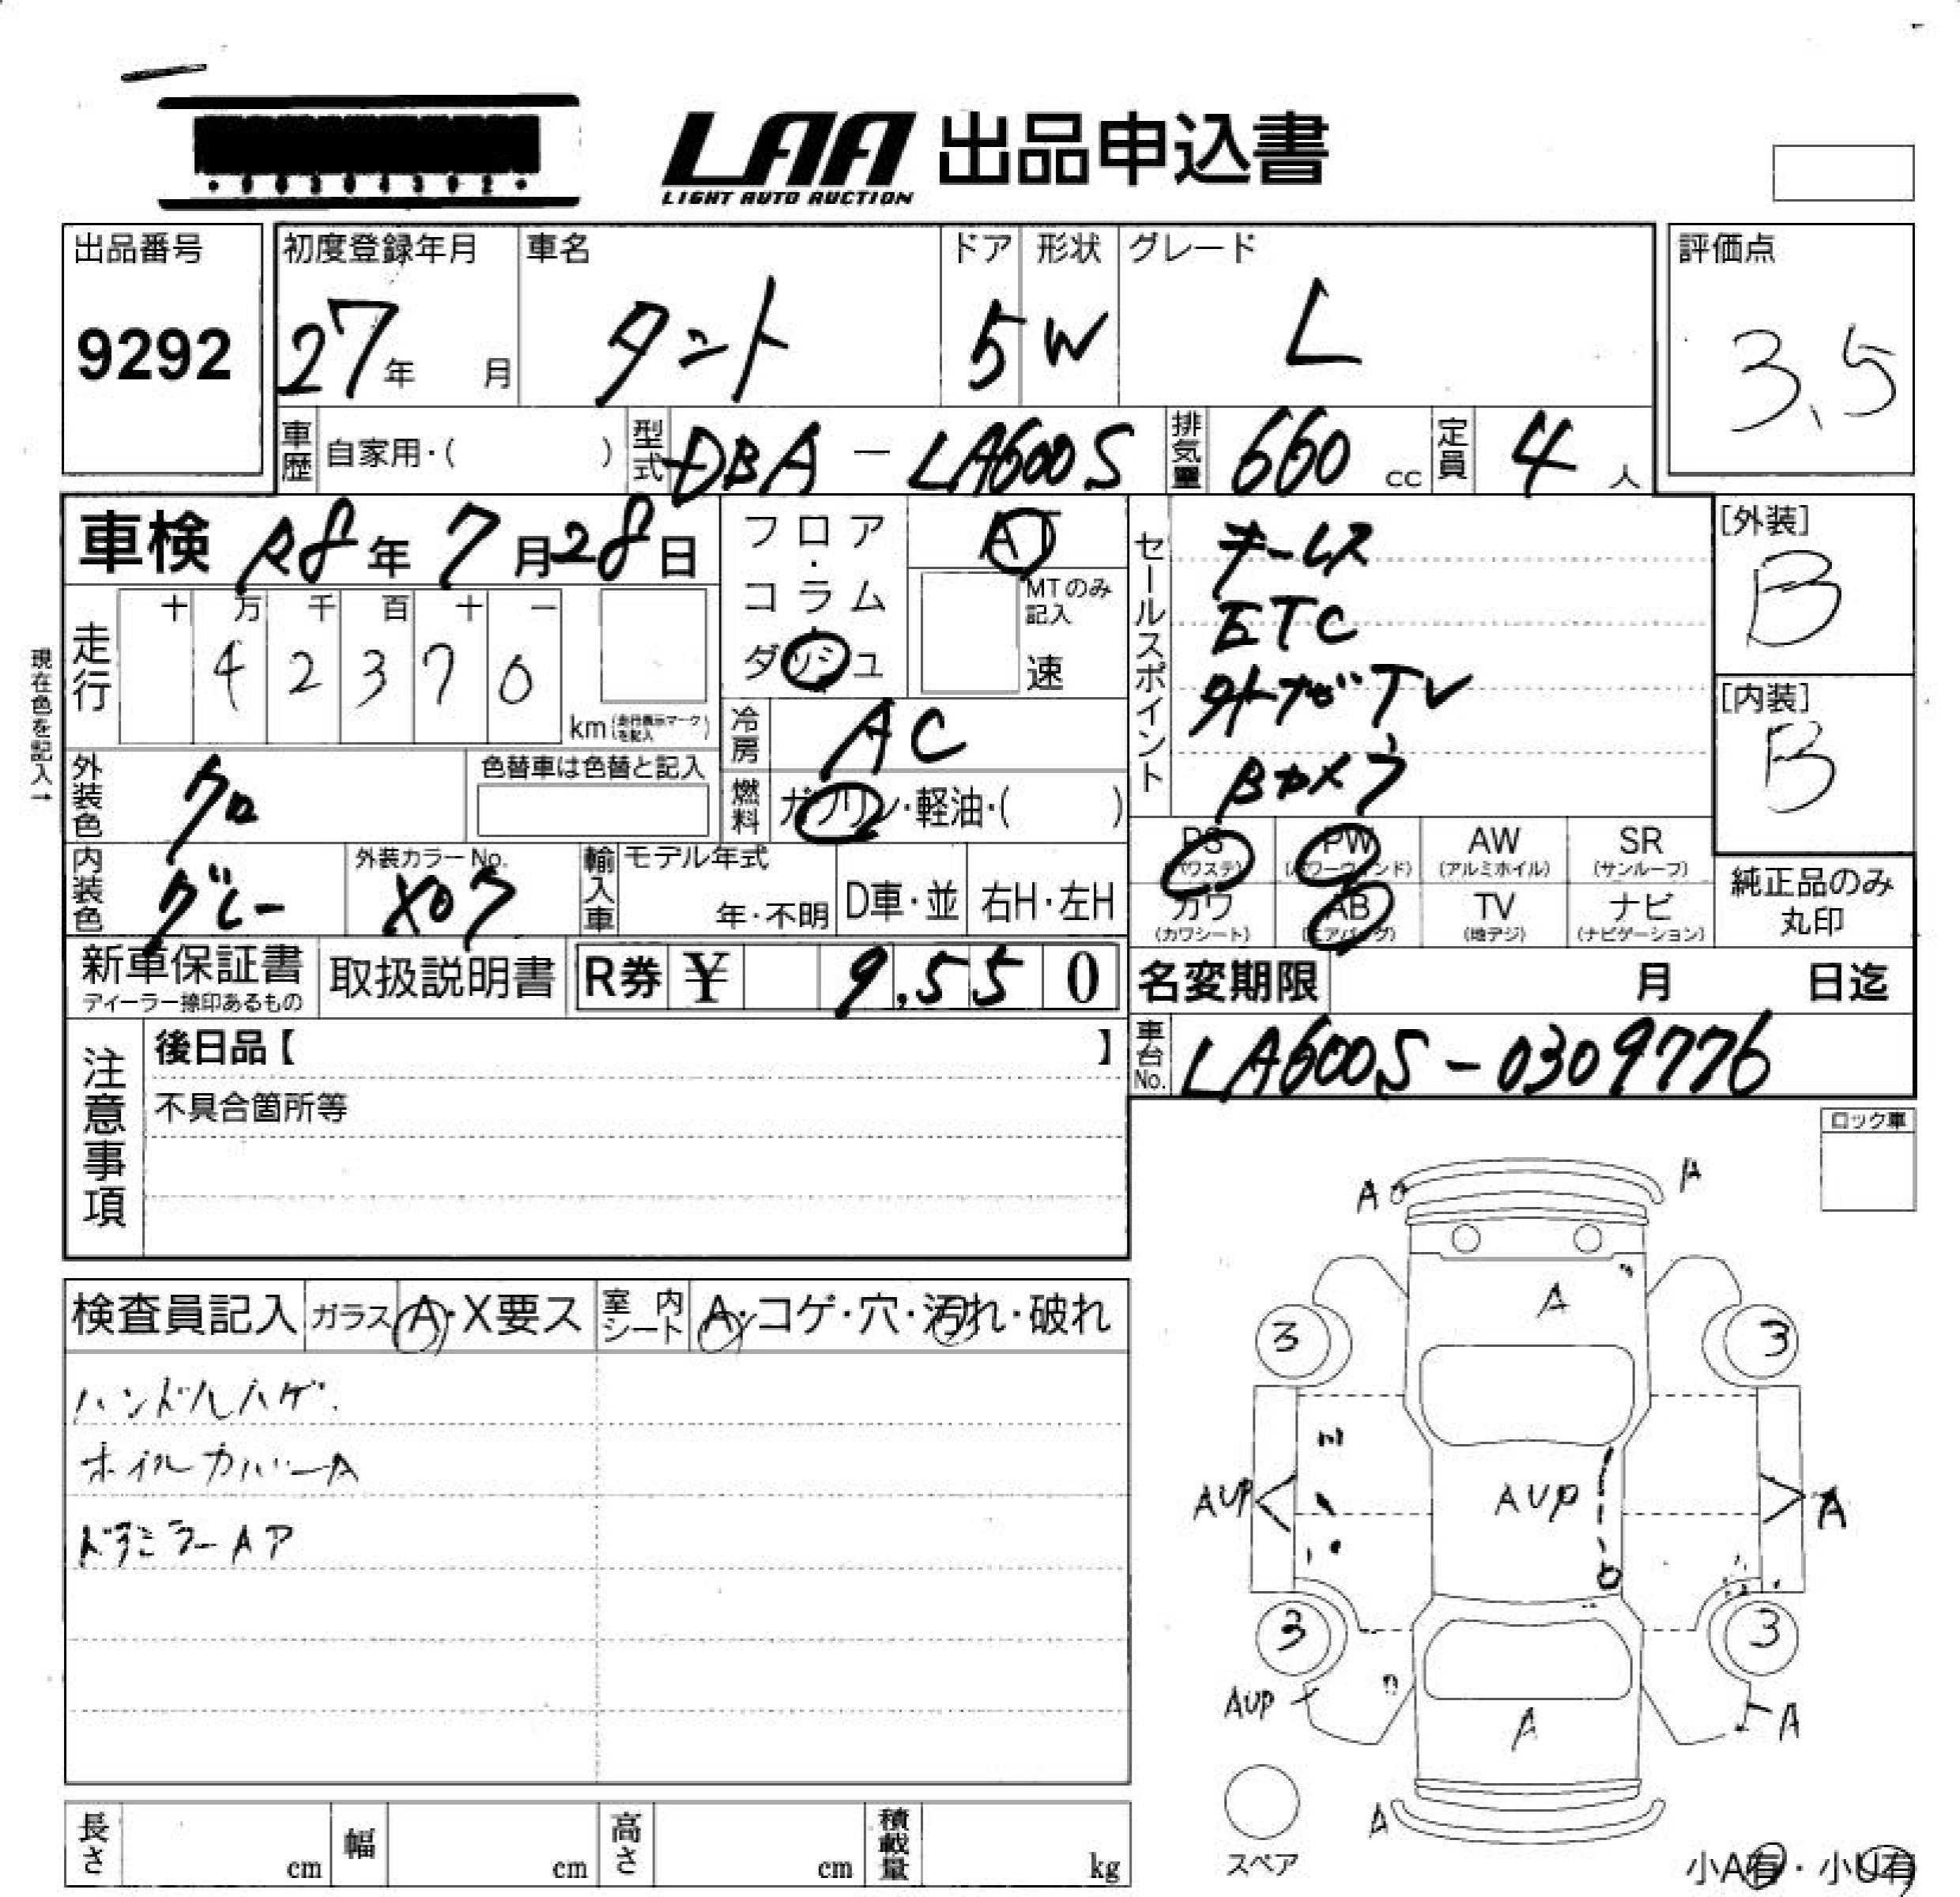 LAA 出品申込書
LIGHT AUTO AUCTION
出品番号
9292
初度登録年月
27年 月
車名
タント
ドア
5
形状
W
グレード
L
評価点
3.5
車歴 自家用・( )
型式 DBA-LA600S
排気量 660 cc
定員 4 人
車検 R8年 7月28日
フロア・コラム・ダッシュ
AT
MTのみ記入
速
セールスポイント
キーレス
ETC
外ナビTV
Bカメラ
[外装]
B
[内装]
B
現在色を記入→
走行
十 万 千 百 十 一
4 2 3 7 0
km(走行表示マークを記入)
冷房 AC
燃料 ガソリン・軽油・( )
外装色 クロ
色替車は色替と記入
内装色 グレー
外装カラーNo.
X07
輸入車
モデル年式
年・不明
D車・並
右H・左H
PS (パワステ)
PW (パワーウィンド)
AW (アルミホイル)
SR (サンルーフ)
カワ (カワシート)
AB (エアバッグ)
TV (地デジ)
ナビ (ナビゲーション)
純正品のみ
丸印
新車保証書
ディーラー捺印あるもの
取扱説明書
R券 ¥ 9,550
名変期限 月 日迄
車台No. LA600S-0309776
注意事項
後日品【 】
不具合箇所等
ロック車
検査員記入
ガラス A・X要ス
室内シート A・コゲ・穴・汚れ・破れ
ハンドルハゲ.
ホイルカバーA
ドアミラーAア
A A
A
3 3
AUP AUP A
3 3
AUP A
A
A
スペア
小A有・小U有
長さ cm
幅 cm
高さ cm
積載量 kg